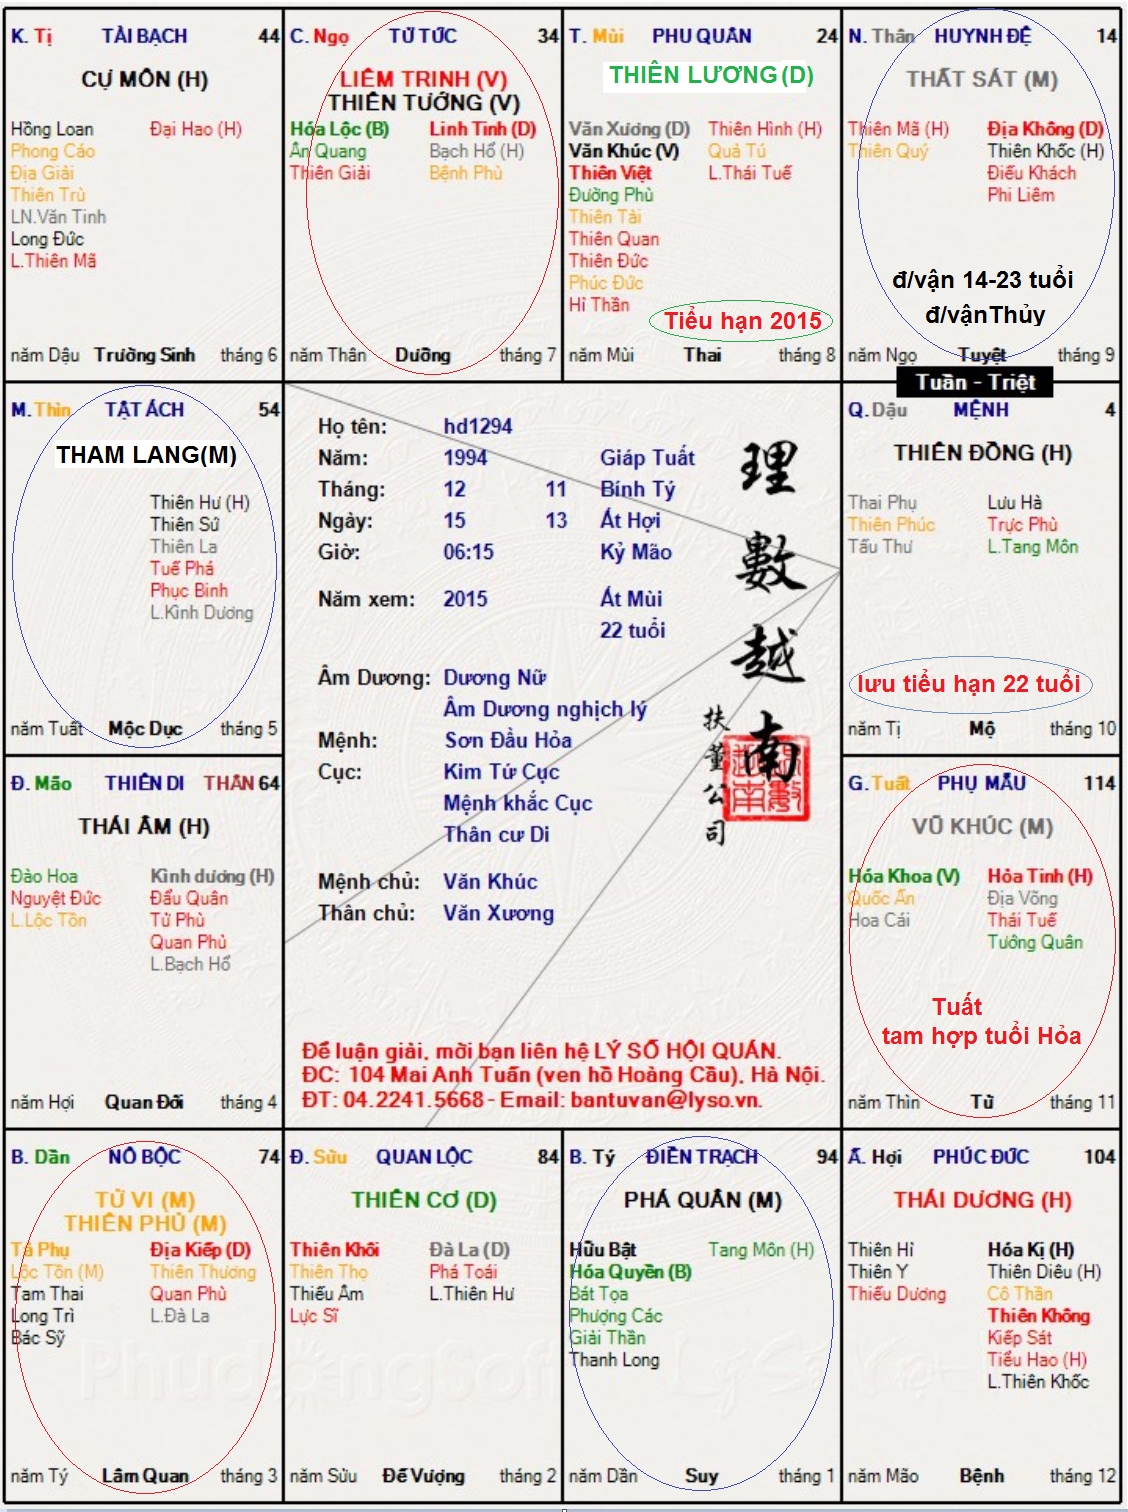 K. Tị TÀI BẠCH 44
CỰ MÔN (H)
Hồng Loan Đại Hao (H)
Phong Cáo
Địa Giải
Thiên Trù
LN.Văn Tinh
Long Đức
L.Thiên Mã
năm Dậu Trường Sinh tháng 6
C. Ngọ TỬ TỨC 34
LIÊM TRINH (V)
THIÊN TƯỚNG (V)
Hóa Lộc (B) Linh Tinh (D)
Ân Quang Bạch Hổ (H)
Thiên Giải Bệnh Phù
năm Thân Dưỡng tháng 7
T. Mùi PHU QUÂN 24
THIÊN LƯƠNG (D)
Văn Xương (D) Thiên Hình (H)
Văn Khúc (V) Quả Tú
Thiên Việt L.Thái Tuế
Đường Phù
Thiên Tài
Thiên Quan
Thiên Đức
Phúc Đức
Hỉ Thần
Tiểu hạn 2015
năm Mùi Thai tháng 8
N. Thân HUYNH ĐỆ 14
THẤT SÁT (M)
Thiên Mã (H) Địa Không (D)
Thiên Quý Thiên Khốc (H)
Điếu Khách
Phi Liêm
đ/vận 14-23 tuổi
đ/vậnThủy
năm Ngọ Tuyệt tháng 9
Tuần - Triệt
M. Thìn TẬT ÁCH 54
THAM LANG(M)
Thiên Hư (H)
Thiên Sứ
Thiên La
Tuế Phá
Phục Binh
L.Kình Dương
năm Tuất Mộc Dục tháng 5
Họ tên: hd1294
Năm: 1994 Giáp Tuất
Tháng: 12 11 Bính Tý
Ngày: 15 13 Ất Hợi
Giờ: 06:15 Kỷ Mão
Năm xem: 2015 Ất Mùi
22 tuổi
Âm Dương: Dương Nữ
Âm Dương nghịch lý
Mệnh: Sơn Đầu Hỏa
Cục: Kim Tứ Cục
Mệnh khắc Cục
Thân cư Di
Mệnh chủ: Văn Khúc
Thân chủ: Văn Xương
理數越南
扶董公司
Để luận giải, mời bạn liên hệ LÝ SỐ HỘI QUÁN.
ĐC: 104 Mai Anh Tuấn (ven hồ Hoàng Cầu), Hà Nội.
ĐT: 04.2241.5668 - Email: bantuvan@lyso.vn.
Q. Dậu MỆNH 4
THIÊN ĐỒNG (H)
Thai Phụ Lưu Hà
Thiên Phúc Trực Phù
Tấu Thư L.Tang Môn
lưu tiểu hạn 22 tuổi
năm Tị Mộ tháng 10
Đ. Mão THIÊN DI THÂN 64
THÁI ÂM (H)
Đào Hoa Kình dương (H)
Nguyệt Đức Đẩu Quân
L.Lộc Tồn Tử Phù
Quan Phủ
L.Bạch Hổ
năm Hợi Quan Đới tháng 4
G. Tuất PHỤ MẪU 114
VŨ KHÚC (M)
Hóa Khoa (V) Hỏa Tinh (H)
Quốc Ấn Địa Võng
Hoa Cái Thái Tuế
Tướng Quân
Tuất
tam hợp tuổi Hỏa
năm Thìn Tử tháng 11
B. Dần NÔ BỘC 74
TỬ VI (M)
THIÊN PHỦ (M)
Tả Phụ Địa Kiếp (D)
Lộc Tồn (M) Thiên Thương
Tam Thai Quan Phù
Long Trì L.Đà La
Bác Sỹ
năm Tý Lâm Quan tháng 3
Đ. Sửu QUAN LỘC 84
THIÊN CƠ (D)
Thiên Khôi Đà La (D)
Thiên Thọ Phá Toái
Thiếu Âm L.Thiên Hư
Lực Sĩ
năm Sửu Đế Vượng tháng 2
B. Tý ĐIỀN TRẠCH 94
PHÁ QUÂN (M)
Hữu Bật Tang Môn (H)
Hóa Quyền (B)
Bát Tọa
Phượng Các
Giải Thần
Thanh Long
năm Dần Suy tháng 1
Ấ. Hợi PHÚC ĐỨC 104
THÁI DƯƠNG (H)
Thiên Hỉ Hóa Kị (H)
Thiên Y Thiên Diêu (H)
Thiếu Dương Cô Thần
Thiên Không
Kiếp Sát
Tiểu Hao (H)
L.Thiên Khốc
năm Mão Bệnh tháng 12